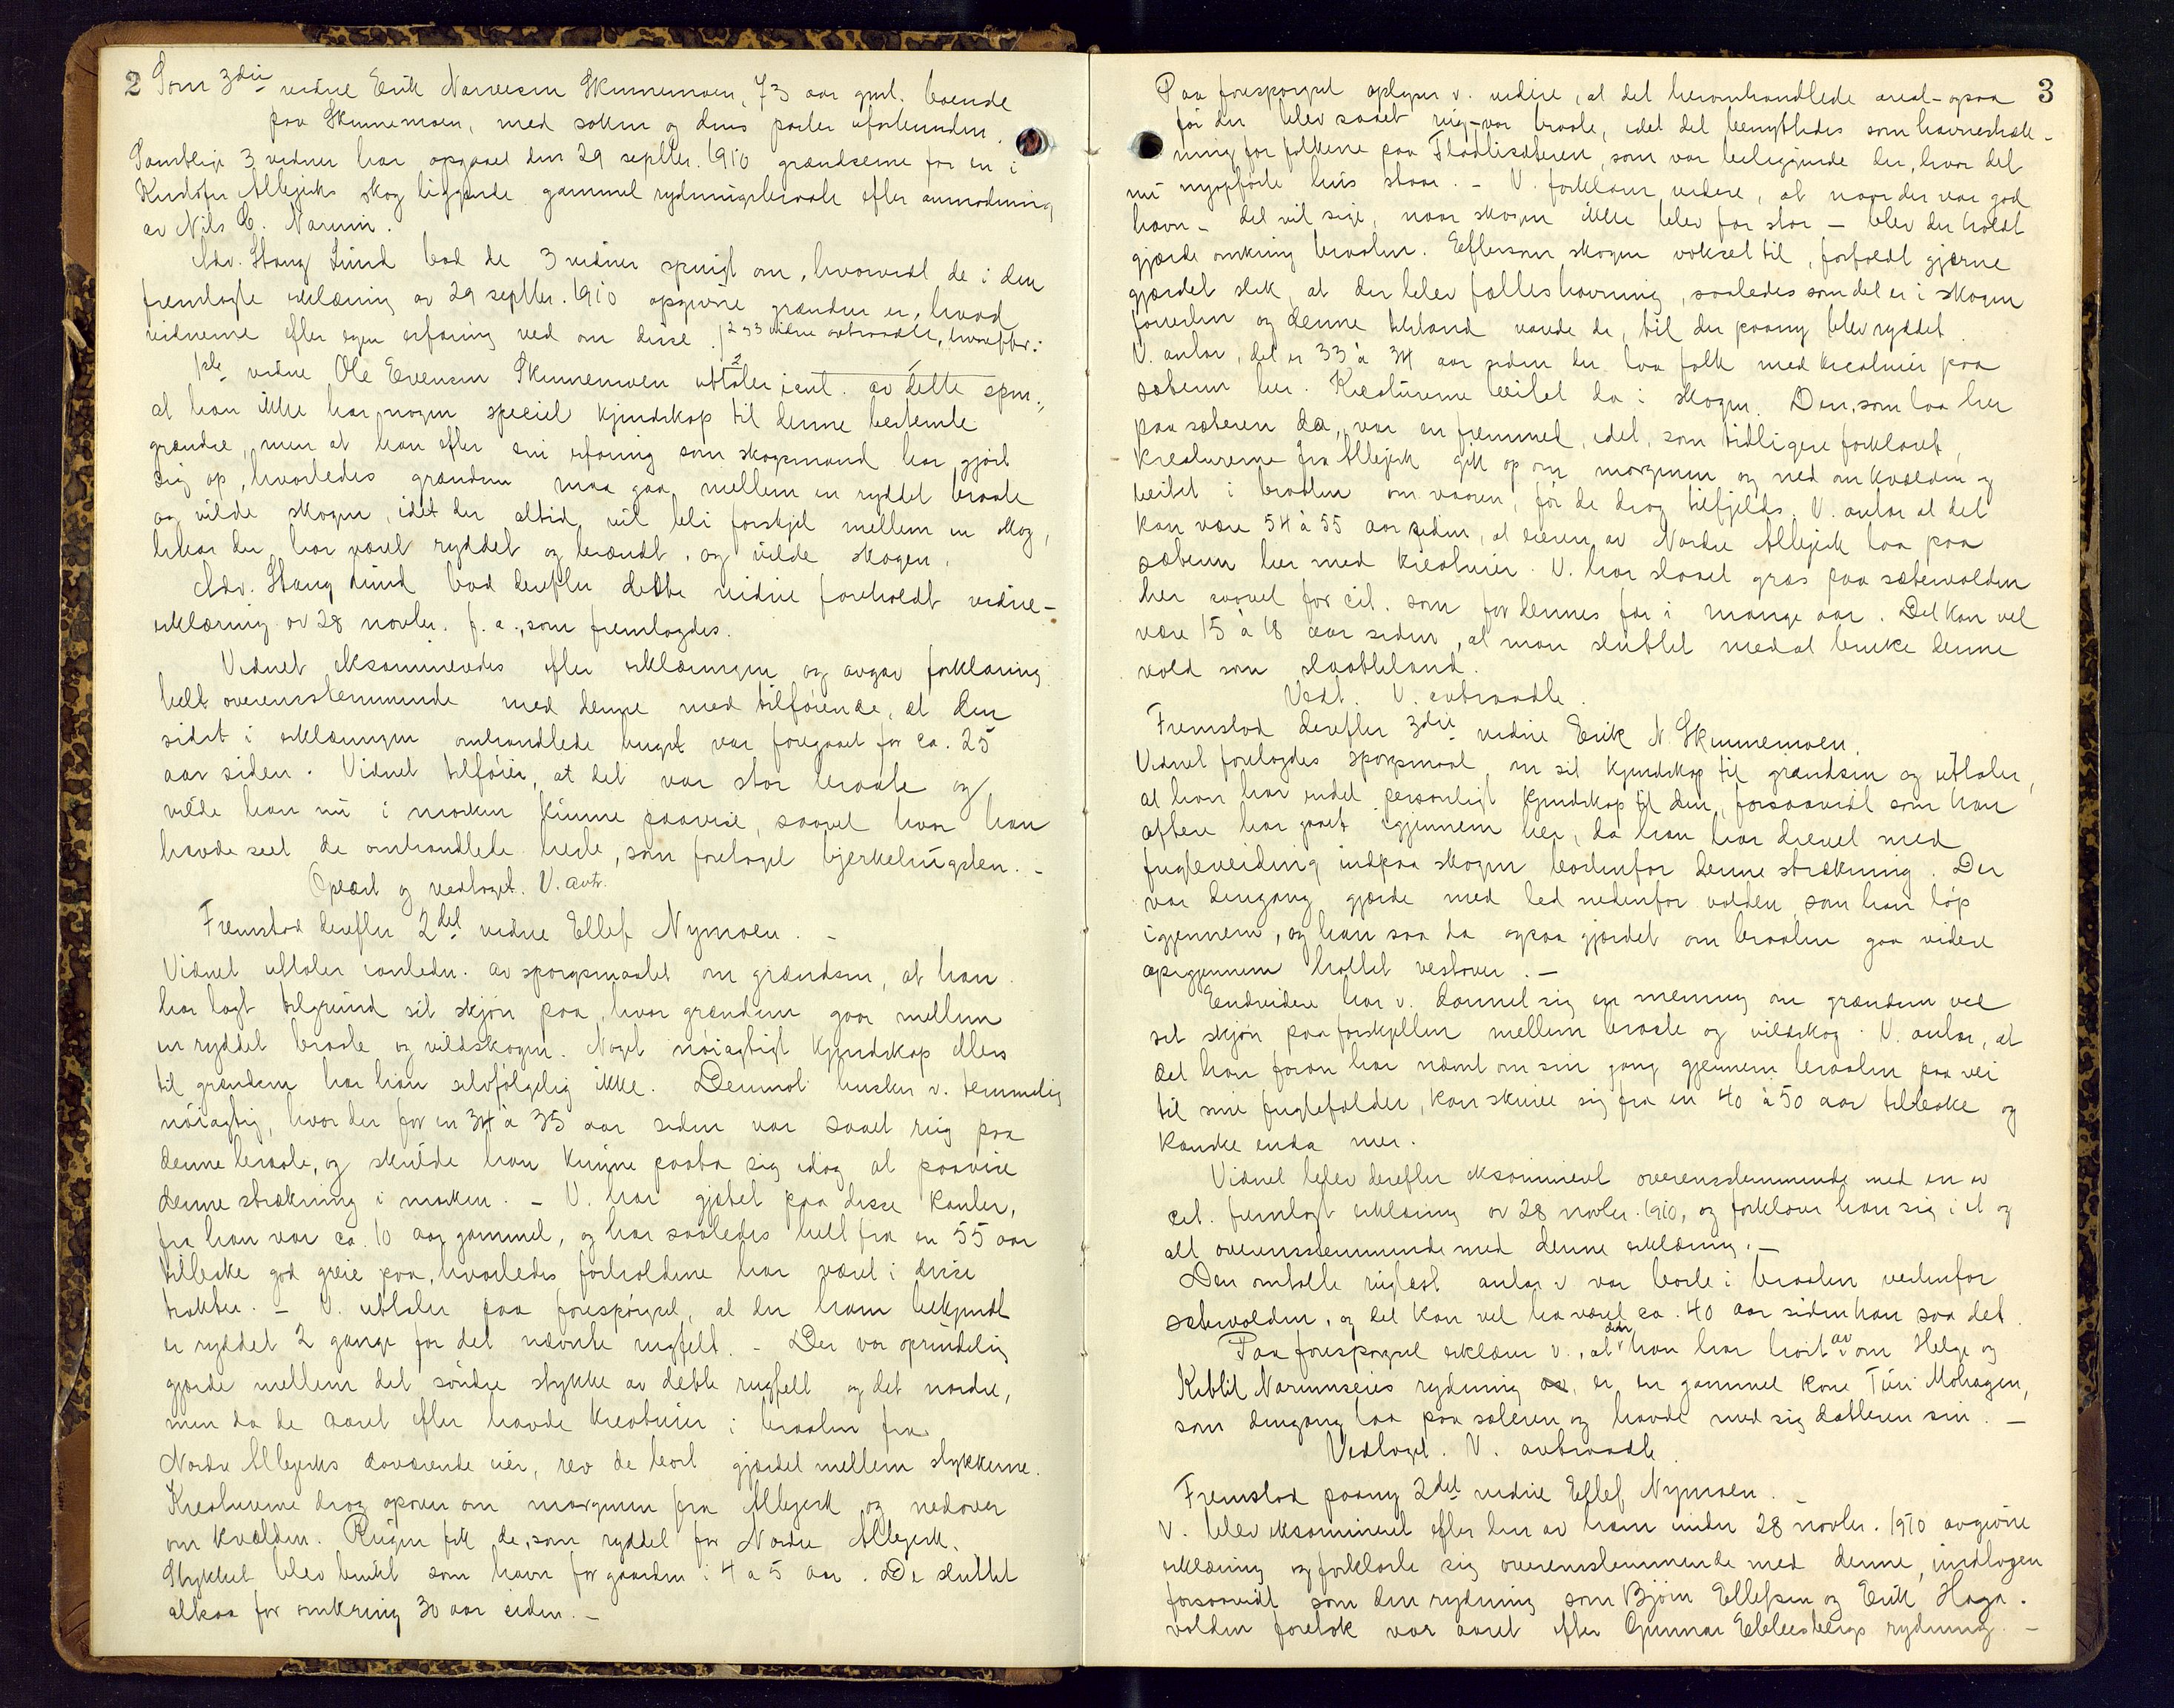 2
Som 3die vidne Erik Narvesen Skinnemoen, 73 aar gml. boende
paa Skinnemoen, med saken og dens parter uforbunden.
Samtlige 3 vidner har opgaaet den 29 septbr. 1910 grændserne for en i
Kristofer Allegjerks skog liggende gammel rydningsbraate efter anmodning
av Nils C. Narum.
Adv. Stang Lund bad de 3 vidner spurgt om, hvorvidt de i den
fremlagte erklæring av 29 septbr. 1910 opgivne grændser er, hvad
vidnerne efter egen erfaring ved om disse. / 2 og 3 vidne avtraadte, hvorefter:
1ste vidne Ole Evensen Skinnemoen uttaler ianl. av dette spm.,
at han ikke har nogen speciel kjendskap til denne bestemte
grændse, men at han efter sin erfaring som skogsmand har gjort
sig op, hvorledes grændsen maa gaa mellem en ryddet braate
og vilde skogen, idet der altid vil bli forskjel mellem en skog,
hvor der har været ryddet og brændt, og vilde skogen.
Adv. Stang Lund bad derefter dette vidne foreholdt vidne-
erklæring av 28 novbr. f. a., som fremlagdes.
Vidnet eksamineredes efter erklæringen og avgav forklaring
helt overensstemmende med denne med tilføiende, at den
sidst i erklæringen omhandlede hugst var foregaaet for ca. 25
aar siden. Vidnet tilføier, at det var stor braate og
vilde han nu i marken kunne paavise, saavel hvor han
havde seet de omhandlede heste, som foretaget bjerkehugsten. -
Oplæst og vedtaget. V. avtr.
Fremstod derefter 2det vidne Ellef Nymoen. -
Vidnet uttaler ianledn. av spørgsmaalet om grændsen, at han
har lagt tilgrund sit skjøn paa, hvor grændsen gaar mellem
en ryddet braate og vildskogen. Noget nøiagtigt kjendskap ellers
til grændsen har han selvfølgelig ikke. Derimot husker v. temmelig
nøiagtig, hvor der for en 34 à 35 aar siden var saaet rug paa
denne braate, og skulde han kunne paata sig idag at paavise
denne strækning i marken. - V. har gjætet paa disse kanter,
fra han var ca. 10 aar gammel, og har saaledes helt fra en 55 aar
tilbake god greie paa, hvorledes forholdene har været i disse
trakter. - V. uttaler paa forespørgsel, at der ham bekjendt
er ryddet 2 gange for det nævnte rugfelt. - Der var oprindelig
gjærde mellem det søndre stykke av dette rugfelt og det nordre,
men da de aaret efter havde kreaturer i braaten fra
Nordre Allegjerks daværende eier, rev de bort gjærdet mellem stykkerne.
Kreaturerne drog opover om morgenen fra Allegjerk og nedover
om kvælden. Rugen fik de, som ryddet for Nordre Allegjerk.
Stykket blev brukt som havn for gaarden i 4 a 5 aar. De sluttet
altsaa for omkring 30 aar siden. -
3
Paa forespørgsel oplyser v. videre, at det heromhandlede areal - ogsaa
før der blev saaet rug - var braate, idet det benyttedes som havnestræk-
ning for folkene paa Flaatlisæteren, som var beliggende der, hvor det
nu nyopførte hus staar. - V. forklarer videre, at naar der var god
havn - det vil sige, naar skogen ikke blev for stor - blev der holdt
gjærde omkring braaten. Eftersom skogen vokset til, forfaldt gjerne
gjærdet slik, at der blev fælleshavning, saaledes som det er i skogen
forresten og denne tilstand varede da, til der paany blev ryddet.
V. antar, det er 33 à 34 aar siden der laa folk med kreaturer paa
sæteren her. Kreaturerne beitet da i skogen. Den, som laa her
paa sæteren da, var en fremmed, idet, som tidligere forklaret,
kreaturerne fra Allegjerk gik op om morgenen og ned om kvælden og
beitet i braaten om vaaren, før de drog tilfjelds. V. antar at det
kan være 54 à 55 aar siden, at eieren av Nordre Allegjerk laa paa
sæteren her med kreaturer. V. har slaaet græs paa sætervolden
her saavel for cit. som for dennes far i mange aar. Det kan vel
være 15 à 18 aar siden, at man sluttet med at bruke denne
vold som slaatteland.
Vedt. V. avtraadte.
Fremstod derefter 3die vidne Erik N. Skinnemoen.
Vidnet forelagdes spørgsmaal om sit kjendskap til grændsen og uttaler,
at han har endel personligt kjendskap til den, forsaavidt som han
oftere har gaaet igjennem her, da han har drevet med
fugleveiding indpaa skogen bortenfor denne strækning. Der
var dengang gjærde med led nedenfor volden, som han løp
igjennem, og han saa da ogsaa gjærdet om braaten gaa videre
opigjennem holtet vestover. -
Endvidere har v. dannet sig en mening om grændsen ved
sit skjøn paa forskjellen mellem braate og vildskog. V. antar, at
det han foran har nævnt om sin gang gjennem braaten paa vei
til sine fuglefælder, kan skrive sig fra en 40 à 50 aar tilbake og
kanske enda mer.
Vidnet blev derefter eksamineret overensstemmende med en av
cit. fremlagt erklæring av 28 novbr. 1910, og forklarer han sig i et og
alt overensstemmende med denne erklæring. -
Den omtalte rugtæst antar v var borte i braaten vestenfor
sætervolden, og det kan vel ha været ca. 40 aar siden han saa det.
Paa forespørgsel erklærer v., at den han har hørt av om Helge og
Kittil Narumseies rydning, er en gammel kone Turi Mohagen,
som dengang laa paa sæteren og havde med sig datteren sin. -
Vedtaget. V. avtraadte.
Fremstod paany 2det vidne Ellef Nymoen. -
V. blev eksamineret efter den av ham under 28 novbr. 1910 avgivne
erklæring og forklarte sig overensstemmende med denne, undtagen
forsaavidt som den rydning som Bjørn Ellefsen og Erik Haga-
volden foretok var aaret efter Gunnar Ebbesbergs rydning. -